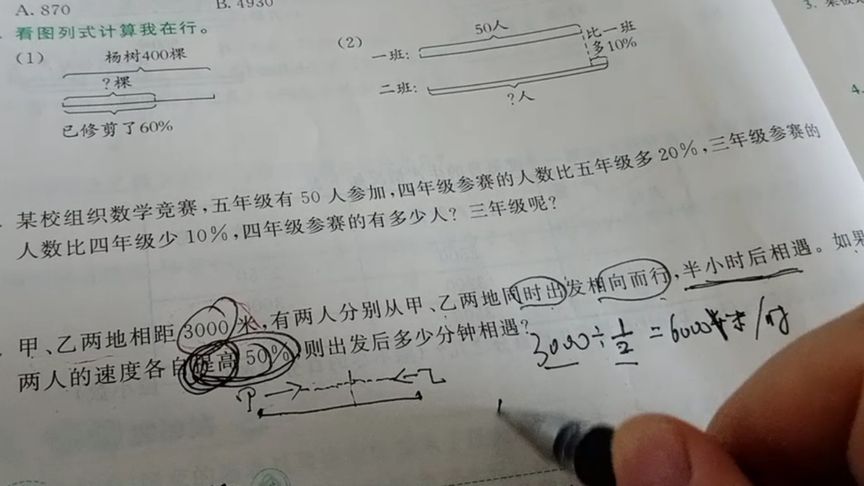 A. 870 B. 4930
看图列式计算我在行。
(1) 杨树400棵
?棵
已修剪了60%
(2) 50人
一班:
比一班
多10%
二班:
?人
某校组织数学竞赛,五年级有 50 人参加,四年级参赛的人数比五年级多 20%,三年级参赛的
人数比四年级少 10%,四年级参赛的有多少人?三年级呢?
甲、乙两地相距 3000 米,有两人分别从甲、乙两地同时出发相向而行,半小时后相遇。如果
两人的速度各自提高 50%,则出发后多少分钟相遇?
3000÷1/2=6000米/时
甲 乙
3.
4.